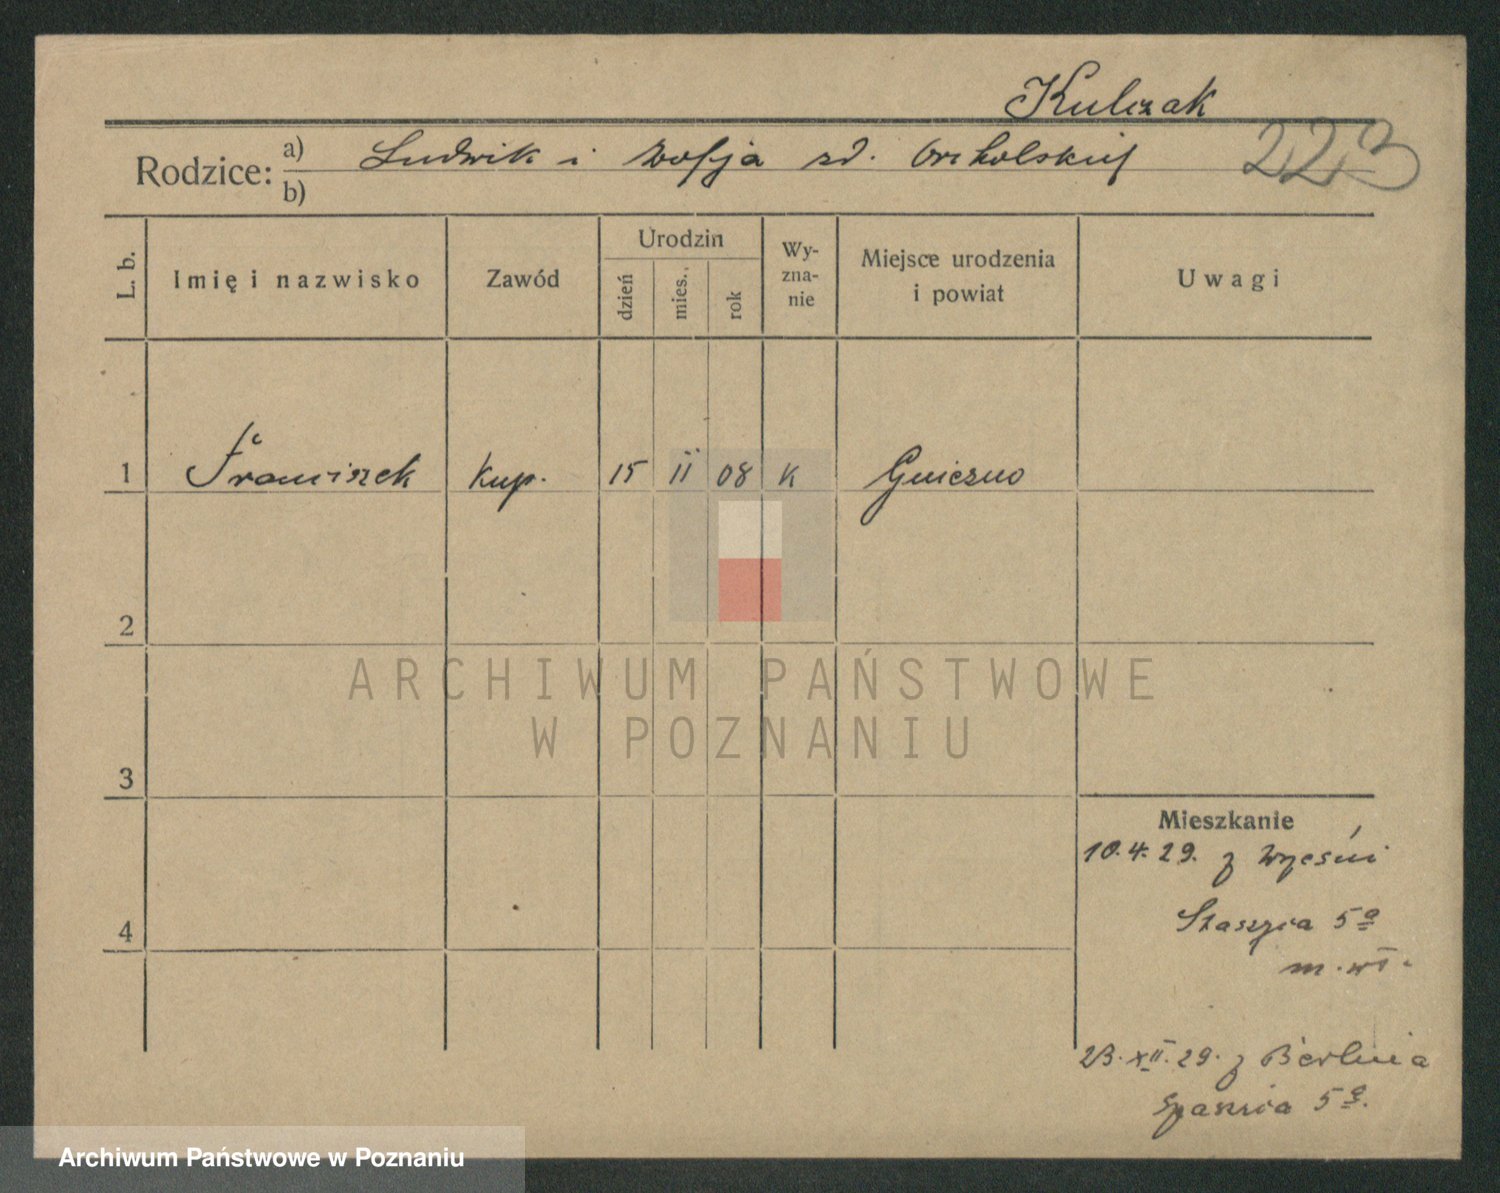 Kulczak
223
Rodzice: a) Ludwik i Zofja zd. Orcholskiej
b)
L. b. Imię i nazwisko Zawód Urodzin dzień mies. rok Wyznanie Miejsce urodzenia i powiat Uwagi
1 Franciszek kup. 15 II 08 k Gniezno
2
ARCHIWUM PAŃSTWOWE
W POZNANIU
3
Mieszkanie
10.4.29. z Wrześni
4
Staszica 5a
m.
23.XII.29. z Berlina
5a.
Archiwum Państwowe w Poznaniu